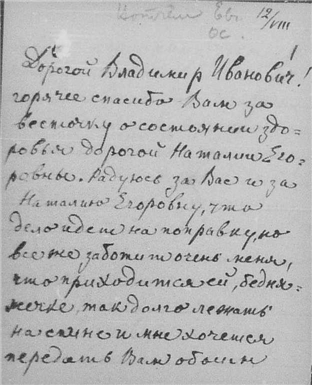 12/VIII
Дорогой Владимир Иванович!
горячее спасибо Вам за
весточку о состоянии здо=
ровья дорогой Наталии Его=
ровны. Радуюсь за Вас и за
Наталию Егоровну, что
дело идет на поправку, но
все же заботит очень меня,
что приходится ей, бедня=
жечке, так долго лежать
на спине и мне хочется
передать Вам обоим